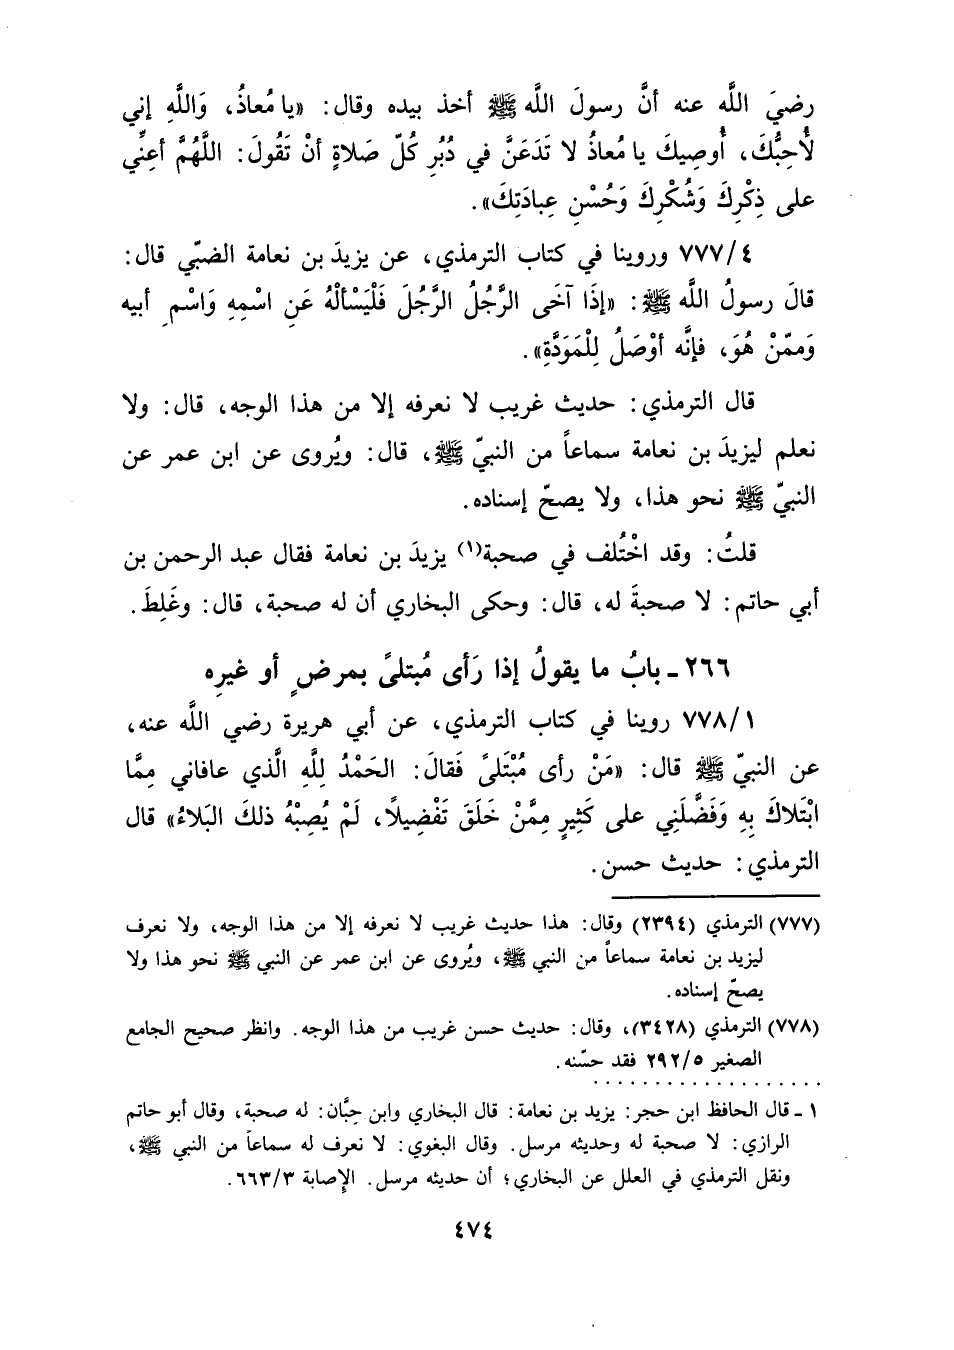 رضيَ اللَّه عنه أنَّ رسولَ اللَّه ﷺ أخذ بيده وقال: «يا مُعاذُ، وَاللَّهِ إني
لأُحِبُّكَ، أُوصِيكَ يا مُعاذُ لا تَدَعَنَّ في دُبُرِ كُلّ صَلاةٍ أنْ تَقُولَ: اللَّهُمَّ أعِنِّي
على ذِكْرِكَ وَشُكْرِكَ وَحُسْنِ عِبادَتِكَ».
٧٧٧/٤ وروينا في كتاب الترمذي، عن يزيدَ بن نعامة الضبّي قال:
قالَ رسولُ اللَّه ﷺ: «إذَا آخَى الرَّجُلُ الرَّجُلَ فَلْيَسألْهُ عَنِ اسْمِهِ وَاسْمِ أبيه
وَممّنْ هُوَ، فإنَّه أوْصَلُ لِلْمَوَدَّةِ».
قال الترمذي: حديث غريب لا نعرفه إلا من هذا الوجه، قال: ولا
نعلم ليزيدَ بن نعامة سماعاً من النبيّ ﷺ، قال: ويُروى عن ابن عمر عن
النبيّ ﷺ نحو هذا، ولا يصحّ إسناده.
قلتُ: وقد اخْتُلف في صحبة(١) يزيدَ بن نعامة فقال عبد الرحمن بن
أبي حاتم: لا صحبةَ له، قال: وحكى البخاري أن له صحبة، قال: وغَلِطَ.
٢٦٦ ـ بابُ ما يقولُ إذا رَأى مُبتلىً بمرضٍ أو غيرِه
٧٧٨/١ روينا في كتاب الترمذي، عن أبي هريرة رضي اللَّه عنه،
عن النبيّ ﷺ قال: «مَنْ رأى مُبْتَلىً فَقالَ: الحَمْدُ لِلَّهِ الَّذي عافاني مِمَّا
ابْتَلاكَ بِهِ وَفَضَّلَنِي على كَثِيرٍ مِمَّنْ خَلَقَ تَفْضِيلًا، لَمْ يُصِبْهُ ذلكَ البَلاءُ» قال
الترمذي: حديث حسن.
(٧٧٧) الترمذي (٢٣٩٤) وقال: هذا حديث غريب لا نعرفه إلا من هذا الوجه، ولا نعرف
ليزيد بن نعامة سماعاً من النبي ﷺ، ويُروى عن ابن عمر عن النبي ﷺ نحو هذا ولا
يصحّ إسناده.
(٧٧٨) الترمذي (٣٤٢٨)، وقال: حديث حسن غريب من هذا الوجه. وانظر صحيح الجامع
الصغير ٢٩٢/٥ فقد حسّنه.
١ ـ قال الحافظ ابن حجر: يزيد بن نعامة: قال البخاري وابن حِبَّان: له صحبة، وقال أبو حاتم
الرازي: لا صحبة له وحديثه مرسل. وقال البغوي: لا نعرف له سماعاً من النبي ﷺ،
ونقل الترمذي في العلل عن البخاري؛ أن حديثه مرسل. الإصابة ٦٦٣/٣.
٤٧٤